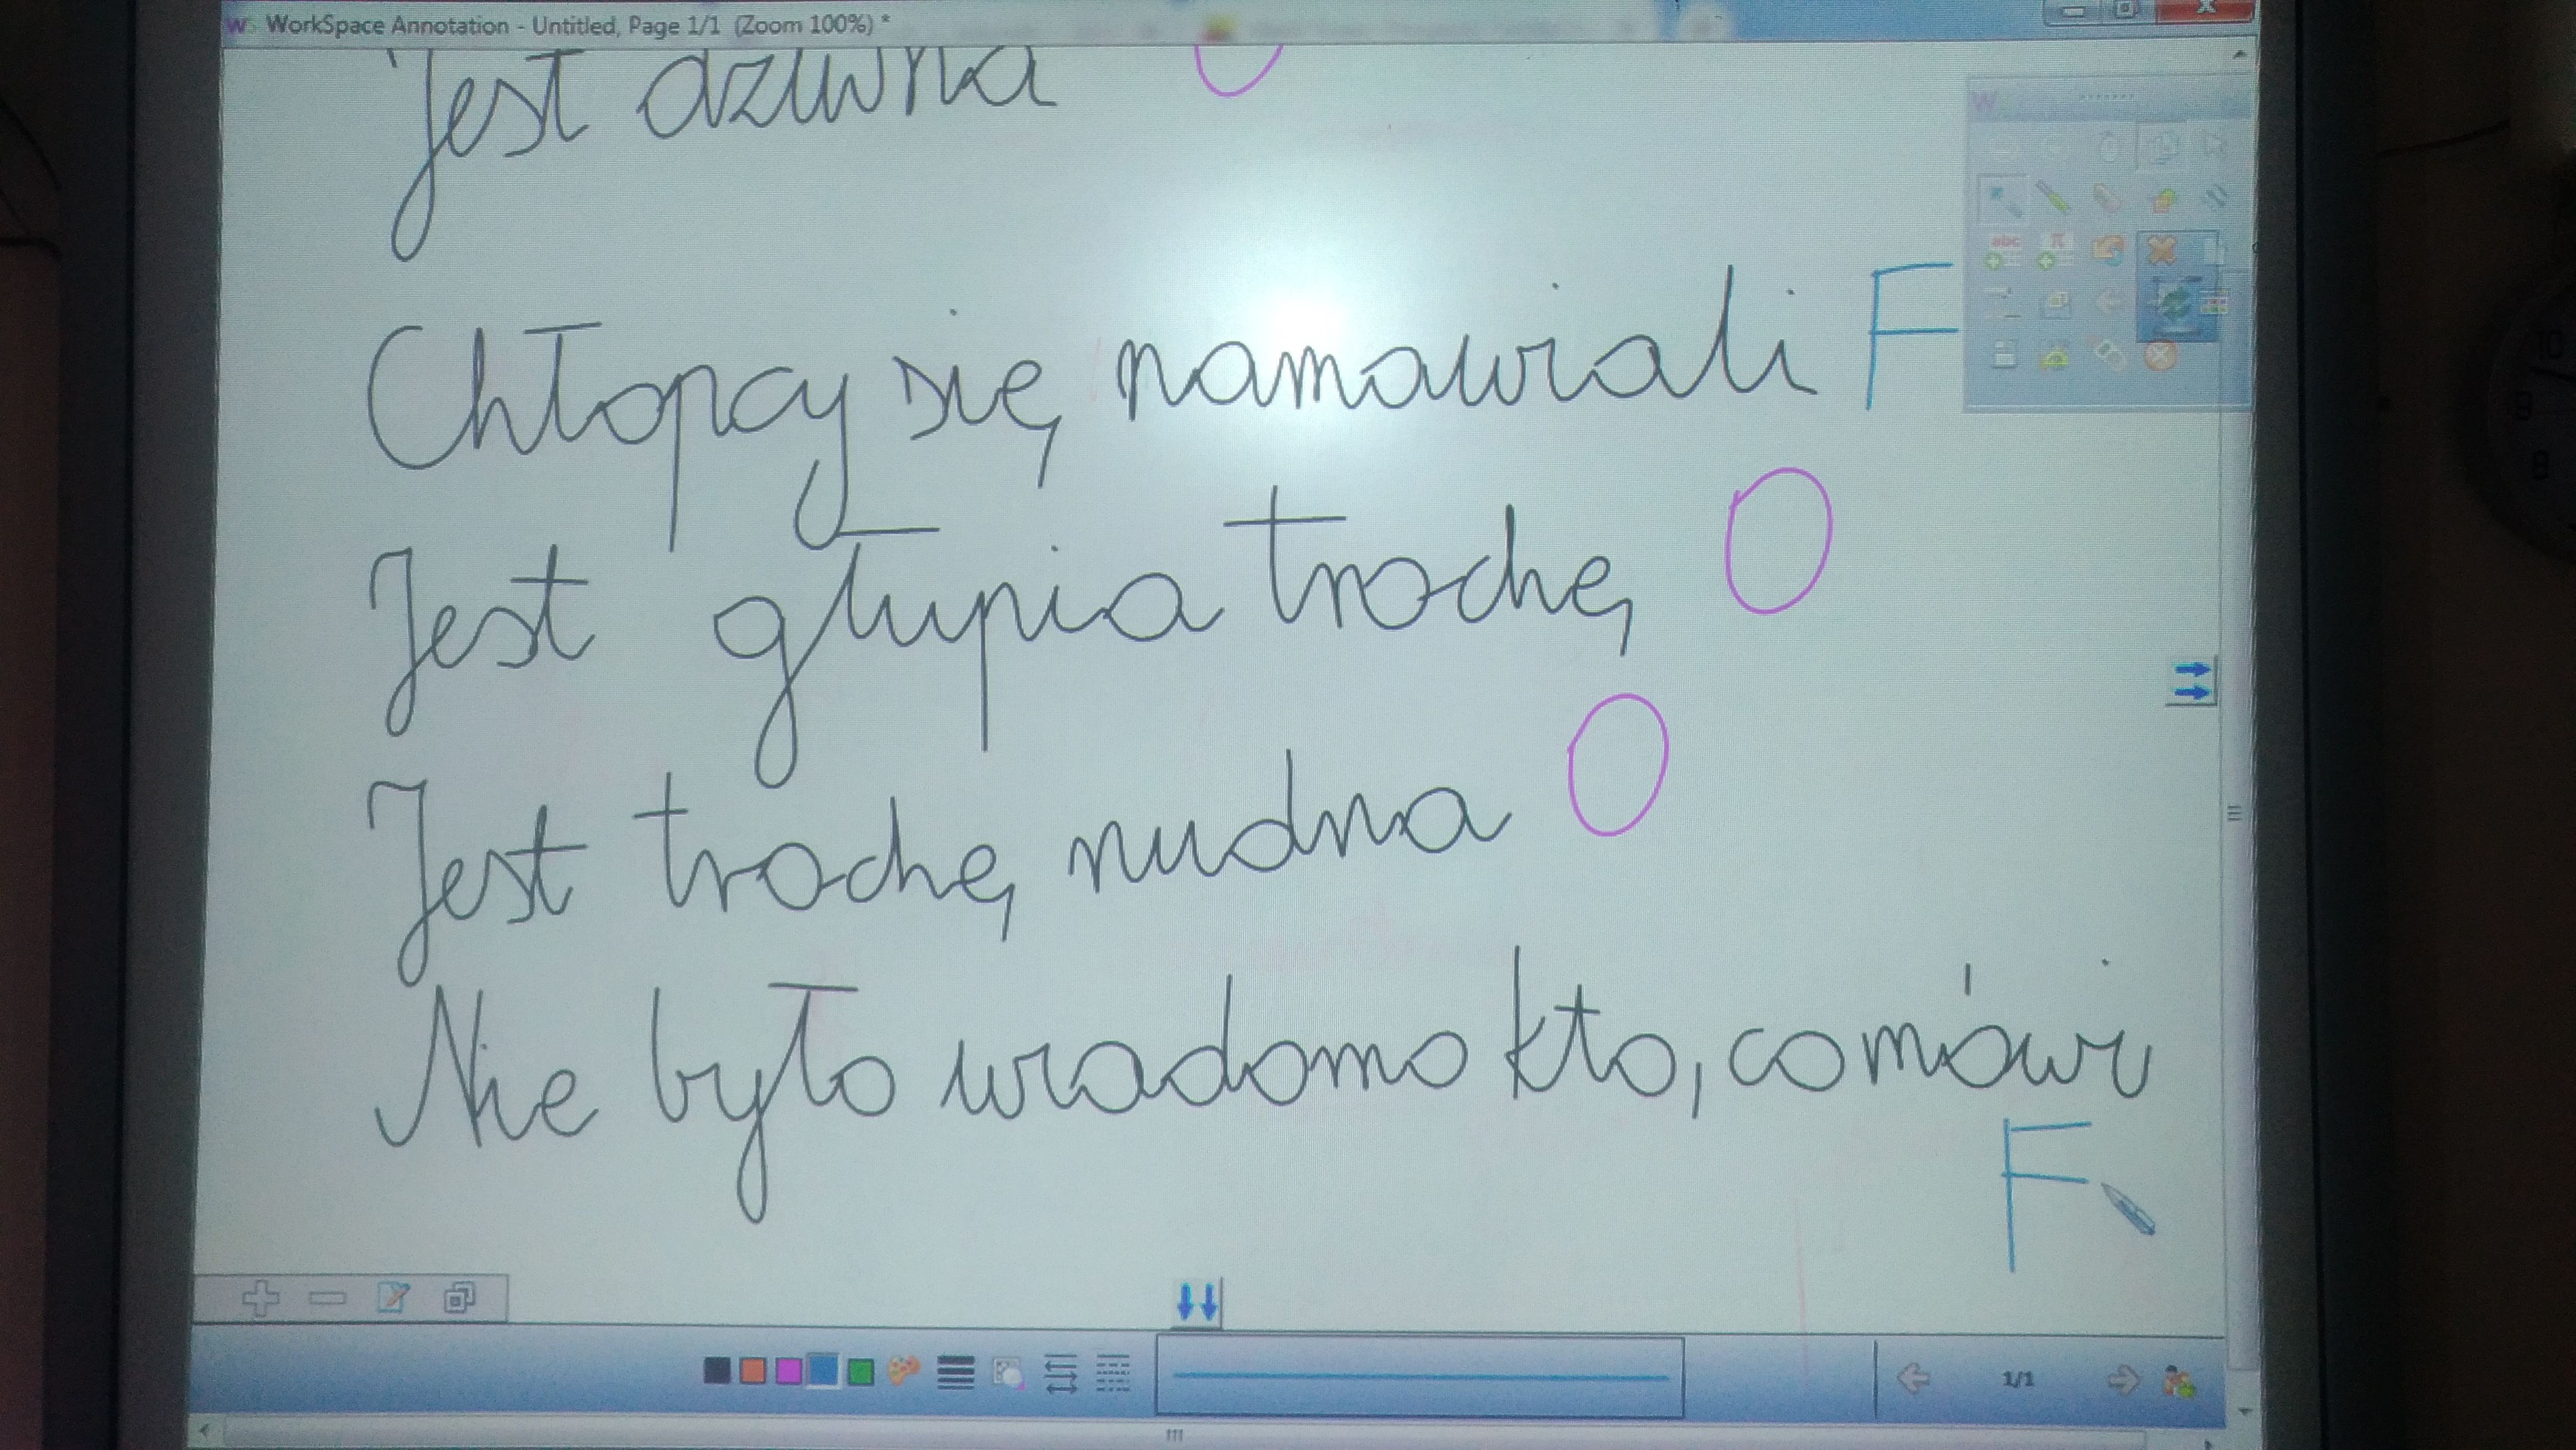 WorkSpace Annotation - Untitled, Page 1/1 (Zoom 100%) *
Jest dziwna O
Chłopcy się namawiali F
Jest głupia trochę O
Jest trochę nudna O
Nie było wiadomo kto, co mówi
F
1/1